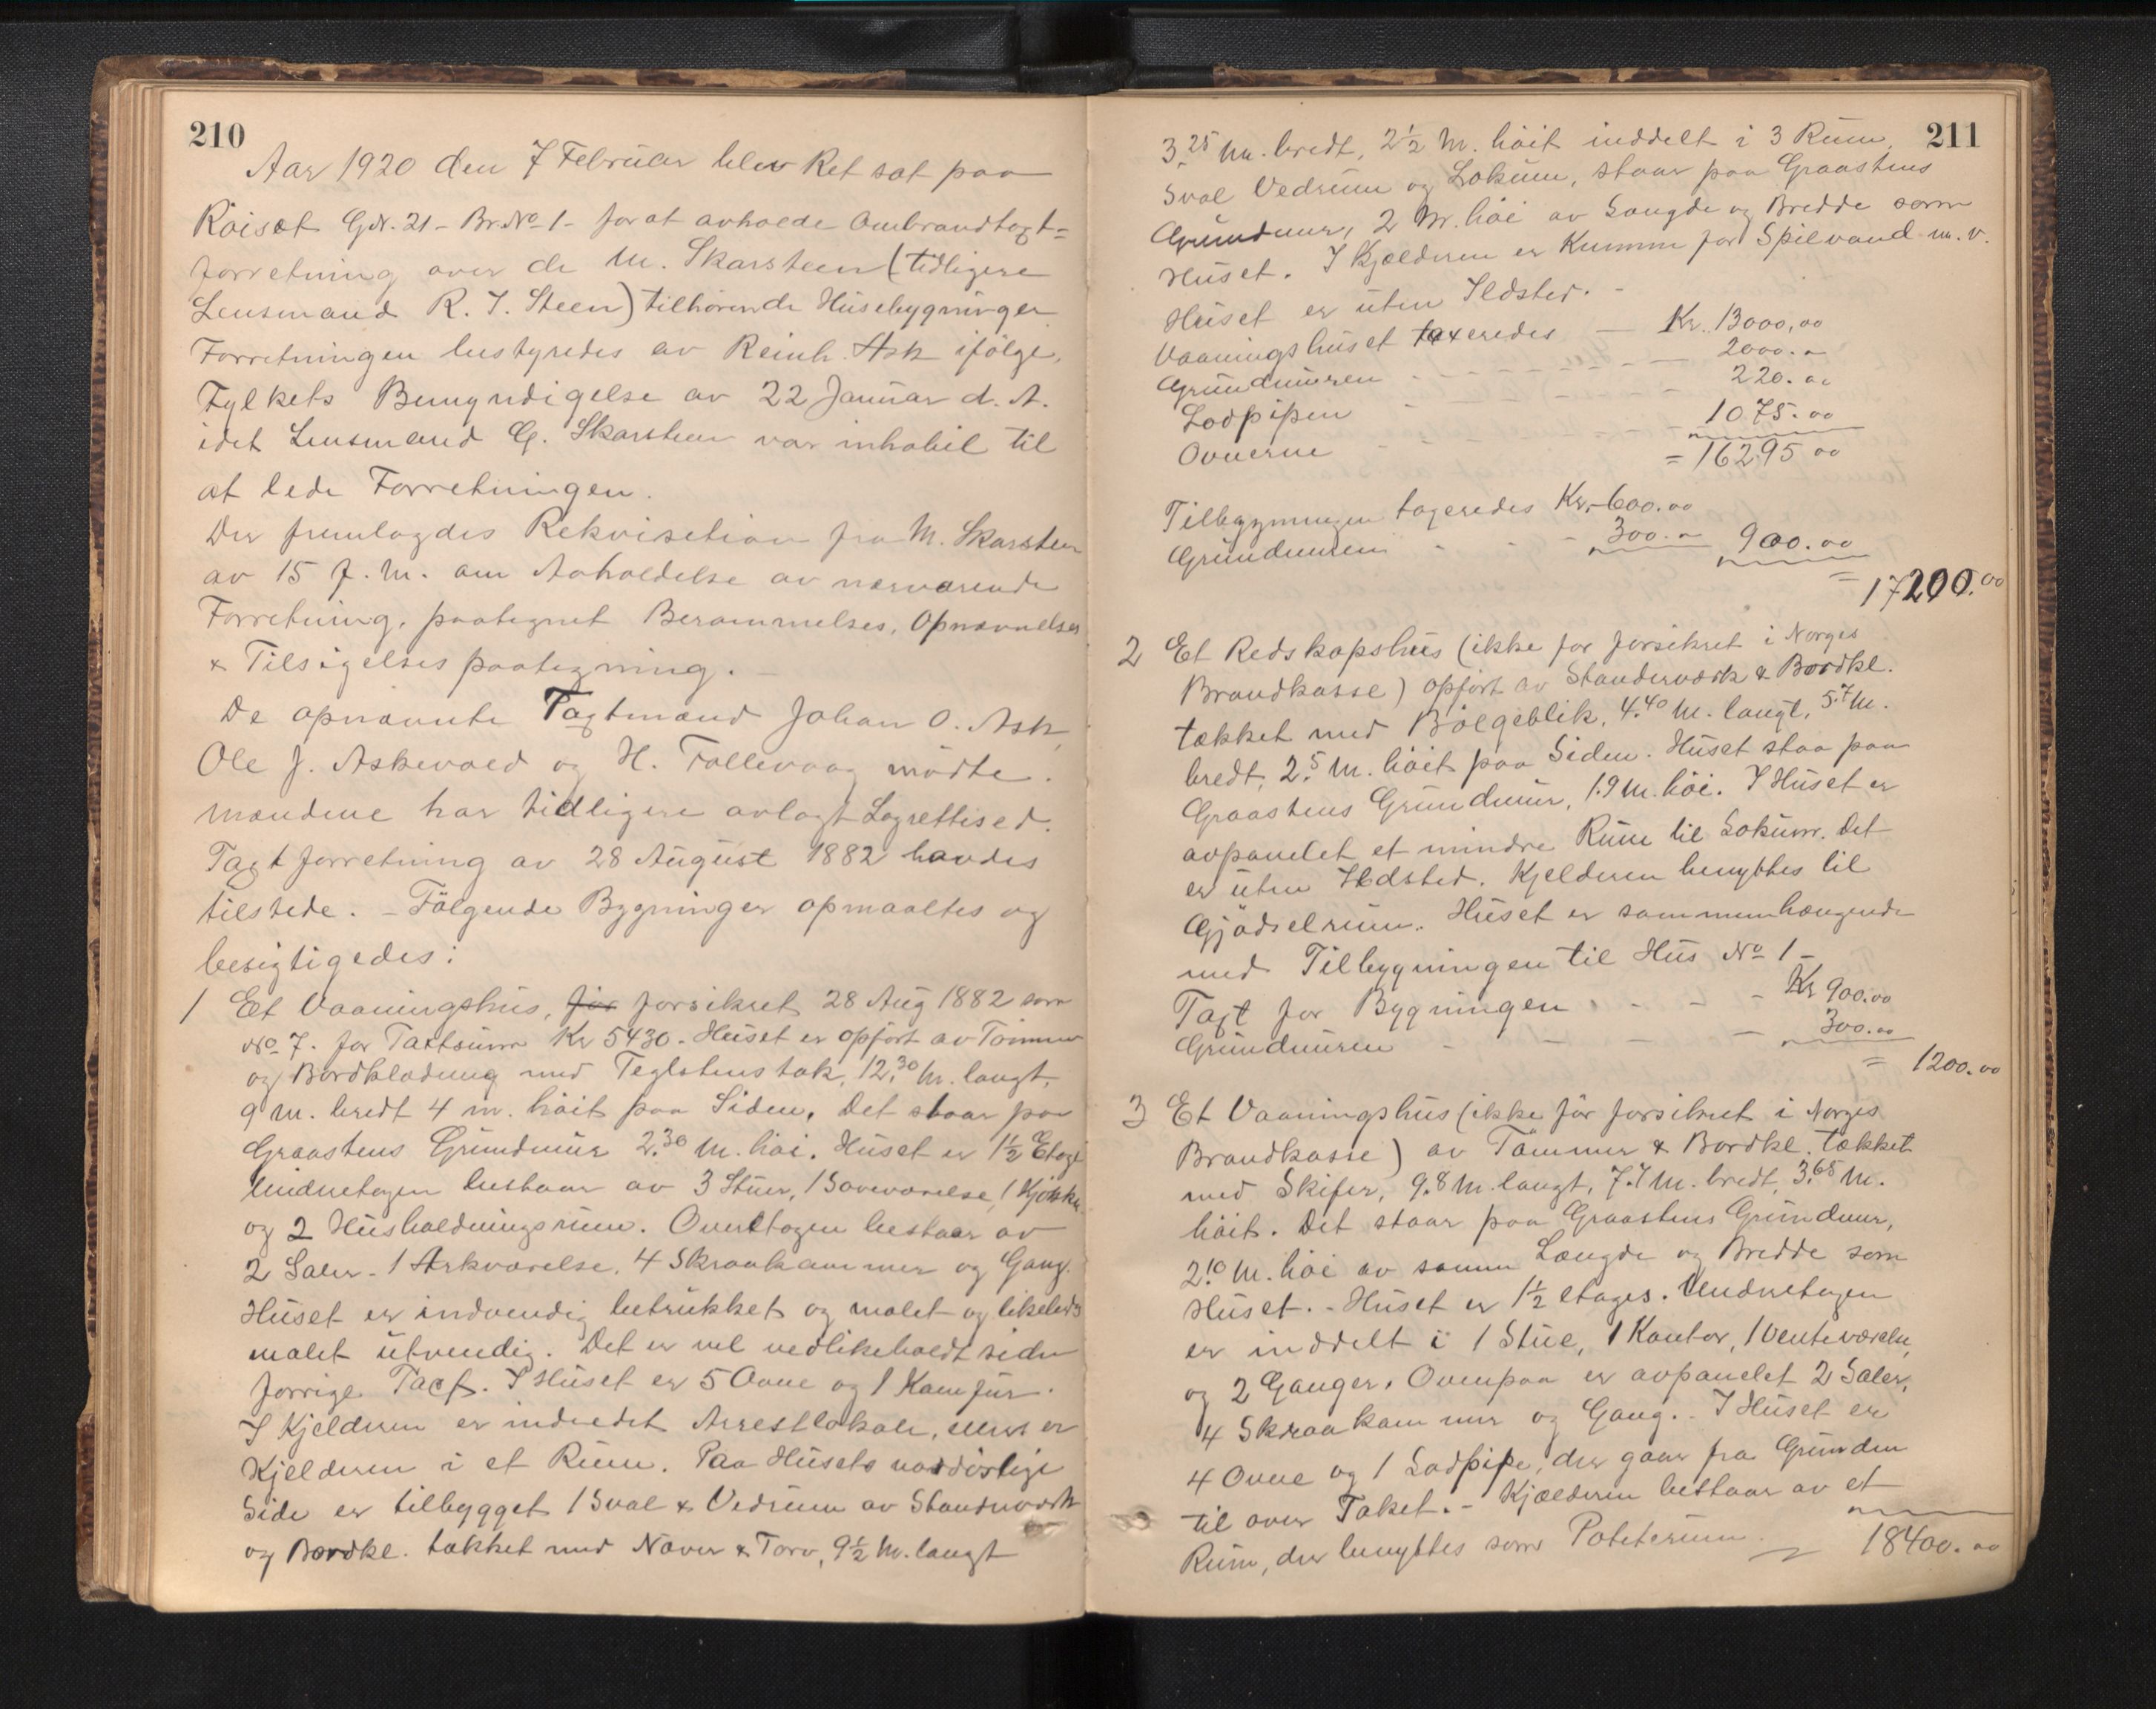 210
Aar 1920 den 7 Februar blev Ret sat paa
Röiset G.N. 21 - Br.No 1 - for at avholde Ombrandtaxt=
forretning over de M. Skarsteen (tidligere
Lensmand R. J. Steen) tilhörende Husebygninger
Forretningen bestyredes av Reinh. Ask ifölge,
Fylkets Bemyndigelse av 22 Januar d. A.
idet Lensmand G. Skarsteen var inhabil til
at lede Forretningen.
Der fremlagdes Rekvisition fra M. Skarsteen
av 15 f. M. om Avholdelse av nærværende
Forretning, paategnet Berammelses, Opnævnelses
& Tilsigelses paategning. -
De opnævnte Taxtmænd Johan O. Ask,
Ole J. Askevold og H. Follevaag mödte.
Mændene har tidligere avlagt Lagrettised.
Taxtforretning av 28 August 1882 havdes
tilstede. - Fölgende Bygninger opmaaltes og
besigtigedes:
1 Et Vaaningshus, för forsikret 28 Aug 1882 som
No 7. for Taxtsum Kr 5430. Huset er opfört av Tömmer
og Bordklædning med Teglstenstak, 12,30 M. langt,
9 M. bredt 4 m. höit paa Siden. Det staar paa
Graastens Grundmur 2.30 M. höi. Huset er 1½ Etage
Undretagen bestaar av 3 Stuer, 1 Soveværelse, 1 Kjökken
og 2 Husholdningsrum. Overetagen bestaar av
2 Saler - 1 Arkværelse, 4 Skraakammer og Gang.
Huset er indvendig betrukket og malet og likeledes
malet utvendig. Det er vel vedlikeholdt siden
forrige Taxt. I Huset er 5 Ovne og 1 Komfur.
I Kjelderen er indredet Arrestlokale, ellers er
Kjelderen i et Rum. Paa Husets nordöstlige
Side er tilbygget 1 Sval & Vedrum av Standerværk
og Bordkl. tækket med Næver & Torv, 9½ M. langt
211
3.25 M. bredt, 2½ M. höit inddelt i 3 Rum,
Sval Vedrum og Lokum, staar paa Graastens
Grundmur, 2 M. höi av Længde og Bredde som
Huset. I Kjælderen er Kumme for Spilvand m. v.
Huset er uten Ildsted. -
Vaaningshuset taxeredes - Kr. 13000,00
Grundmuren - - - 2000.00
Lodpipen - - - 220.00
Ovnerne - - - 1075.00
= 16295 00
Tilbygningen taxeredes Kr. 600.00
Grundmuren - - - 300.00 900.00
= 17200.00
2 Et Redskapshus (ikke för forsikret i Norges
Brandkasse) opfört av Standerværk & Bordkl.
tækket med Bölgeblik, 4.40 M. langt, 5.7 M.
bredt, 2.5 M. höit paa Siden. Huset staa paa
Graastens Grundmur, 1.9 M. höi. I Huset er
avpanelet et mindre Rum til Lokum. Det
er uten Ildsted. Kjelderen benyttes til
Gjödselrum. Huset er sammenhængende
med Tilbygningen til Hus No 1 -
Taxt for Bygningen - - - Kr 900.00
Grundmuren - - - 300.00
= 1200.00
3 Et Vaaningshus (ikke för forsikret i Norges
Brandkasse) av Tömmer & Bordkl. tækket
med Skifer, 9.8 M langt, 7.7 M. bredt, 3.65 M.
höit. Det staar paa Graastens Grundmur,
2.10 M. höi av samme Længde og Bredde som
Huset. - Huset er 1½ etages. Undretagen
er inddelt i 1 Stue, 1 Kontor, 1 Venteværelse,
og 2 Ganger. Ovenpaa er avpanelet 2 Saler,
4 Skraakammer og Gang. - I Huset er
4 Ovne og 1 Lodpipe, der gaar fra Grunden
til over Taket. - Kjælderen bestaar av et
Rum, der benyttes som Poteterum.
18400.00